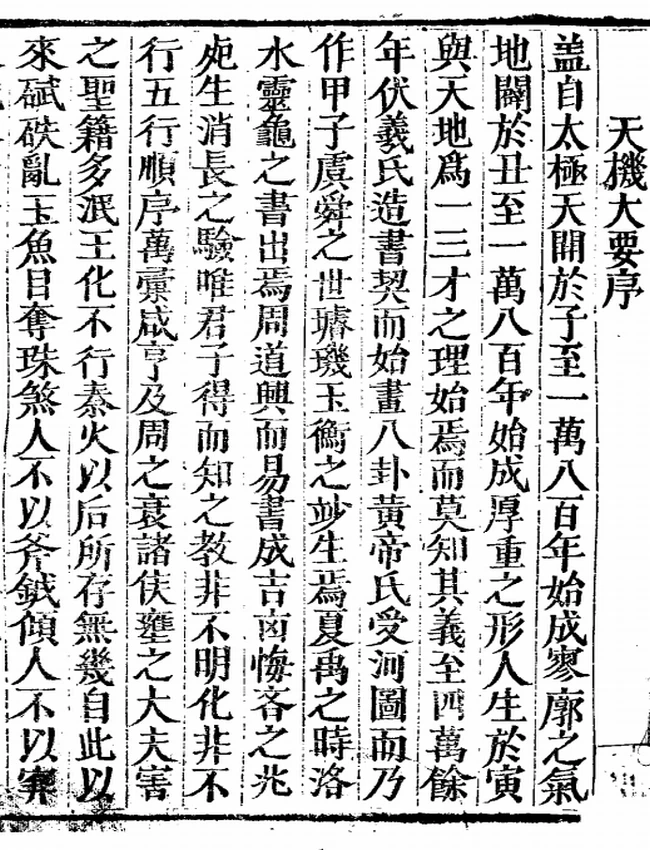 天機大要序
盖自太極天開於子至一萬八百年始成寥廓之氣
地闢於丑至一萬八百年始成厚重之形人生於寅
與天地爲一三才之理始焉而莫知其義至四萬餘
年伏羲氏造書契而始畫八卦黃帝氏受河圖而乃
作甲子虞舜之世璿璣玉衡之妙生焉夏禹之時洛
水靈龜之書出焉周道興而易書成吉凶悔吝之兆
死生消長之驗唯君子得而知之教非不明化非不
行五行順序萬彙咸亨及周之衰諸侯壅之大夫害
之聖籍多泯王化不行秦火以后所存無幾自此以
來碔砆亂玉魚目奪珠煞人不以斧鉞傾人不以